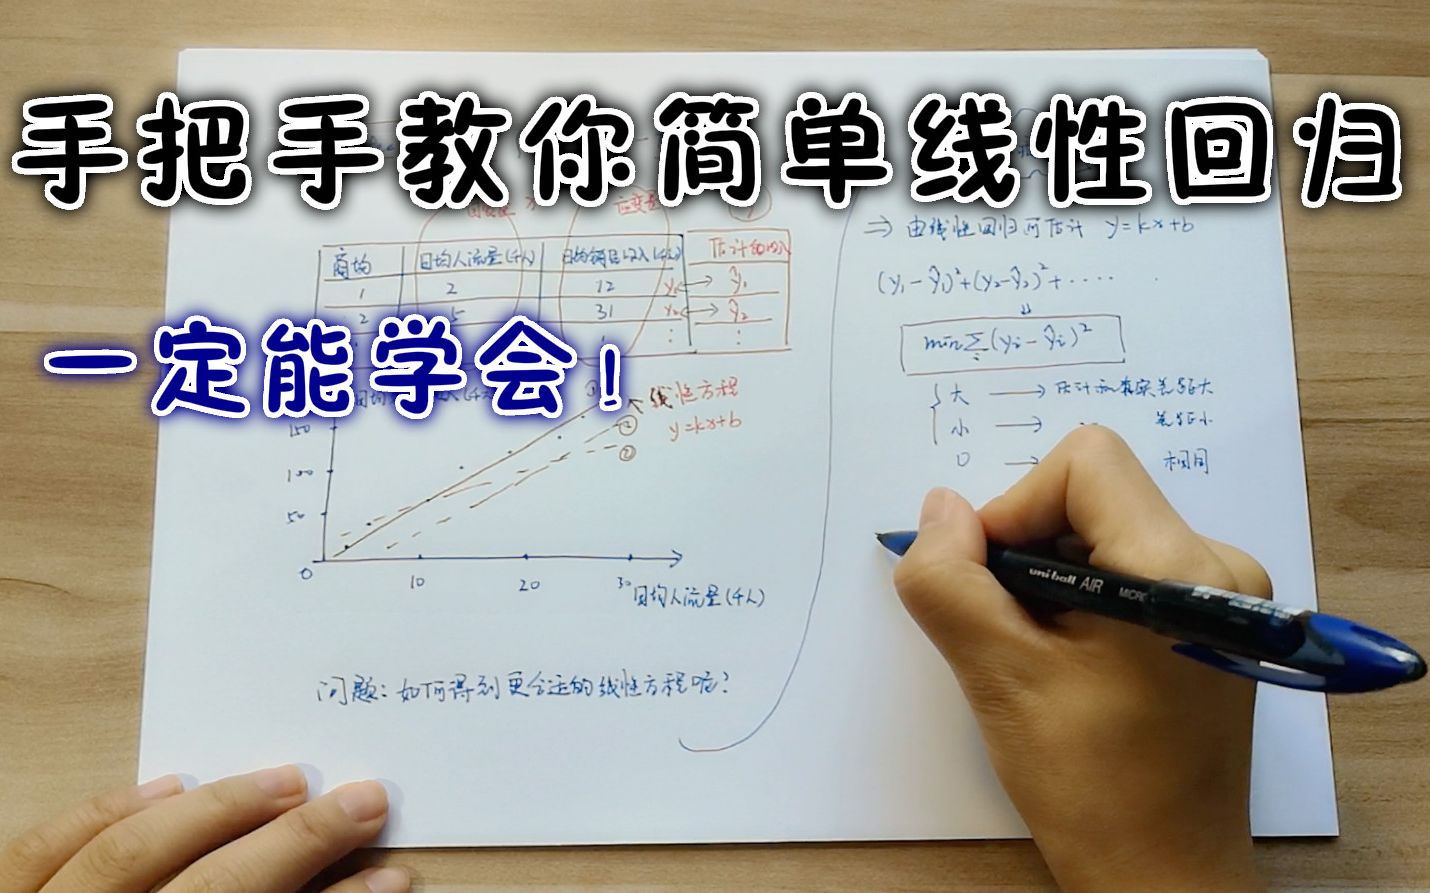 手把手教你简单线性回归
一定能学会！
商场 日均人流量(千人) 日均销售收入(千元) 估计的收入
1 2 12 y₁ ŷ₁
2 5 31 y₂ ŷ₂
150
100
50
0 10 20 30 日均人流量(千人)
① 线性方程
② y=kx+b
问题：如何得到更合适的线性方程呢？
⇒ 由线性回归可估计 y=kx+b
(y₁-ŷ₁)²+(y₂-ŷ₂)²+····
min∑ᵢ(yᵢ-ŷᵢ)²
大 → 估计和真实差距大
小 → 差距小
0 → 相同
uni-ball AIR MICRO